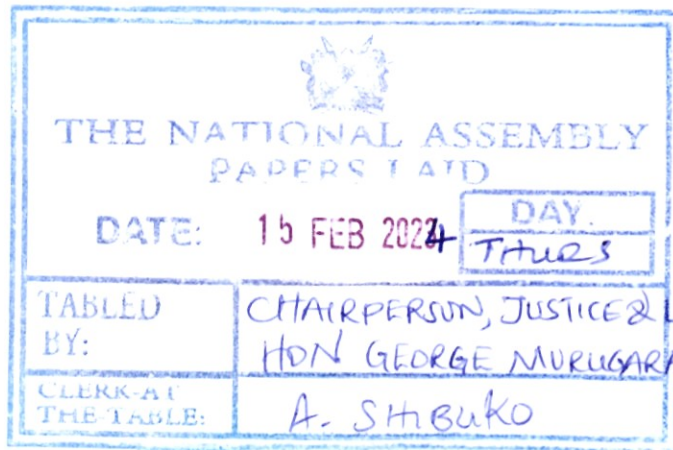 THE NATIONAL ASSEMBLY
PAPERS LAID
DATE: 15 FEB 2024
DAY.
THURS
TABLED BY:
CHAIRPERSON, JUSTICE &
HON GEORGE MURUGARA
CLERK-AT THE-TABLE:
A. SHIBUKO